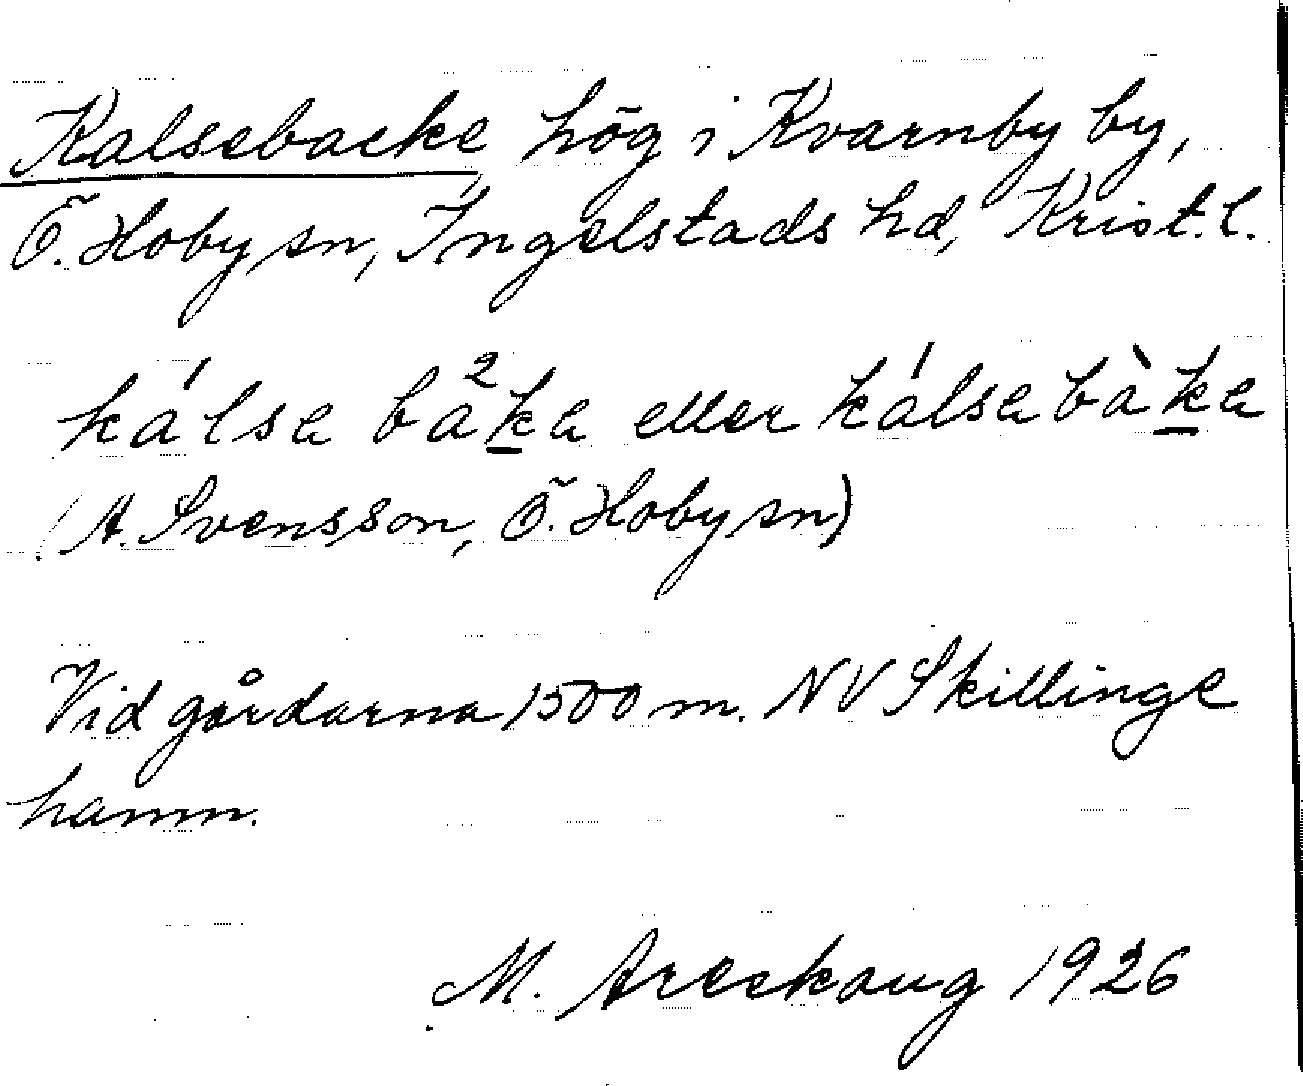 Kalsebacke hög i Kvarnby by,
Ö. Hoby sn, Ingelstads hd, Krist. l.
ká lsa bà²ka eller kálsabàka
(A. Svensson, Ö. Hoby sn)
Vid gårdarna 1500 m. NV Skillinge
hamn.
M. Areskoug 1926